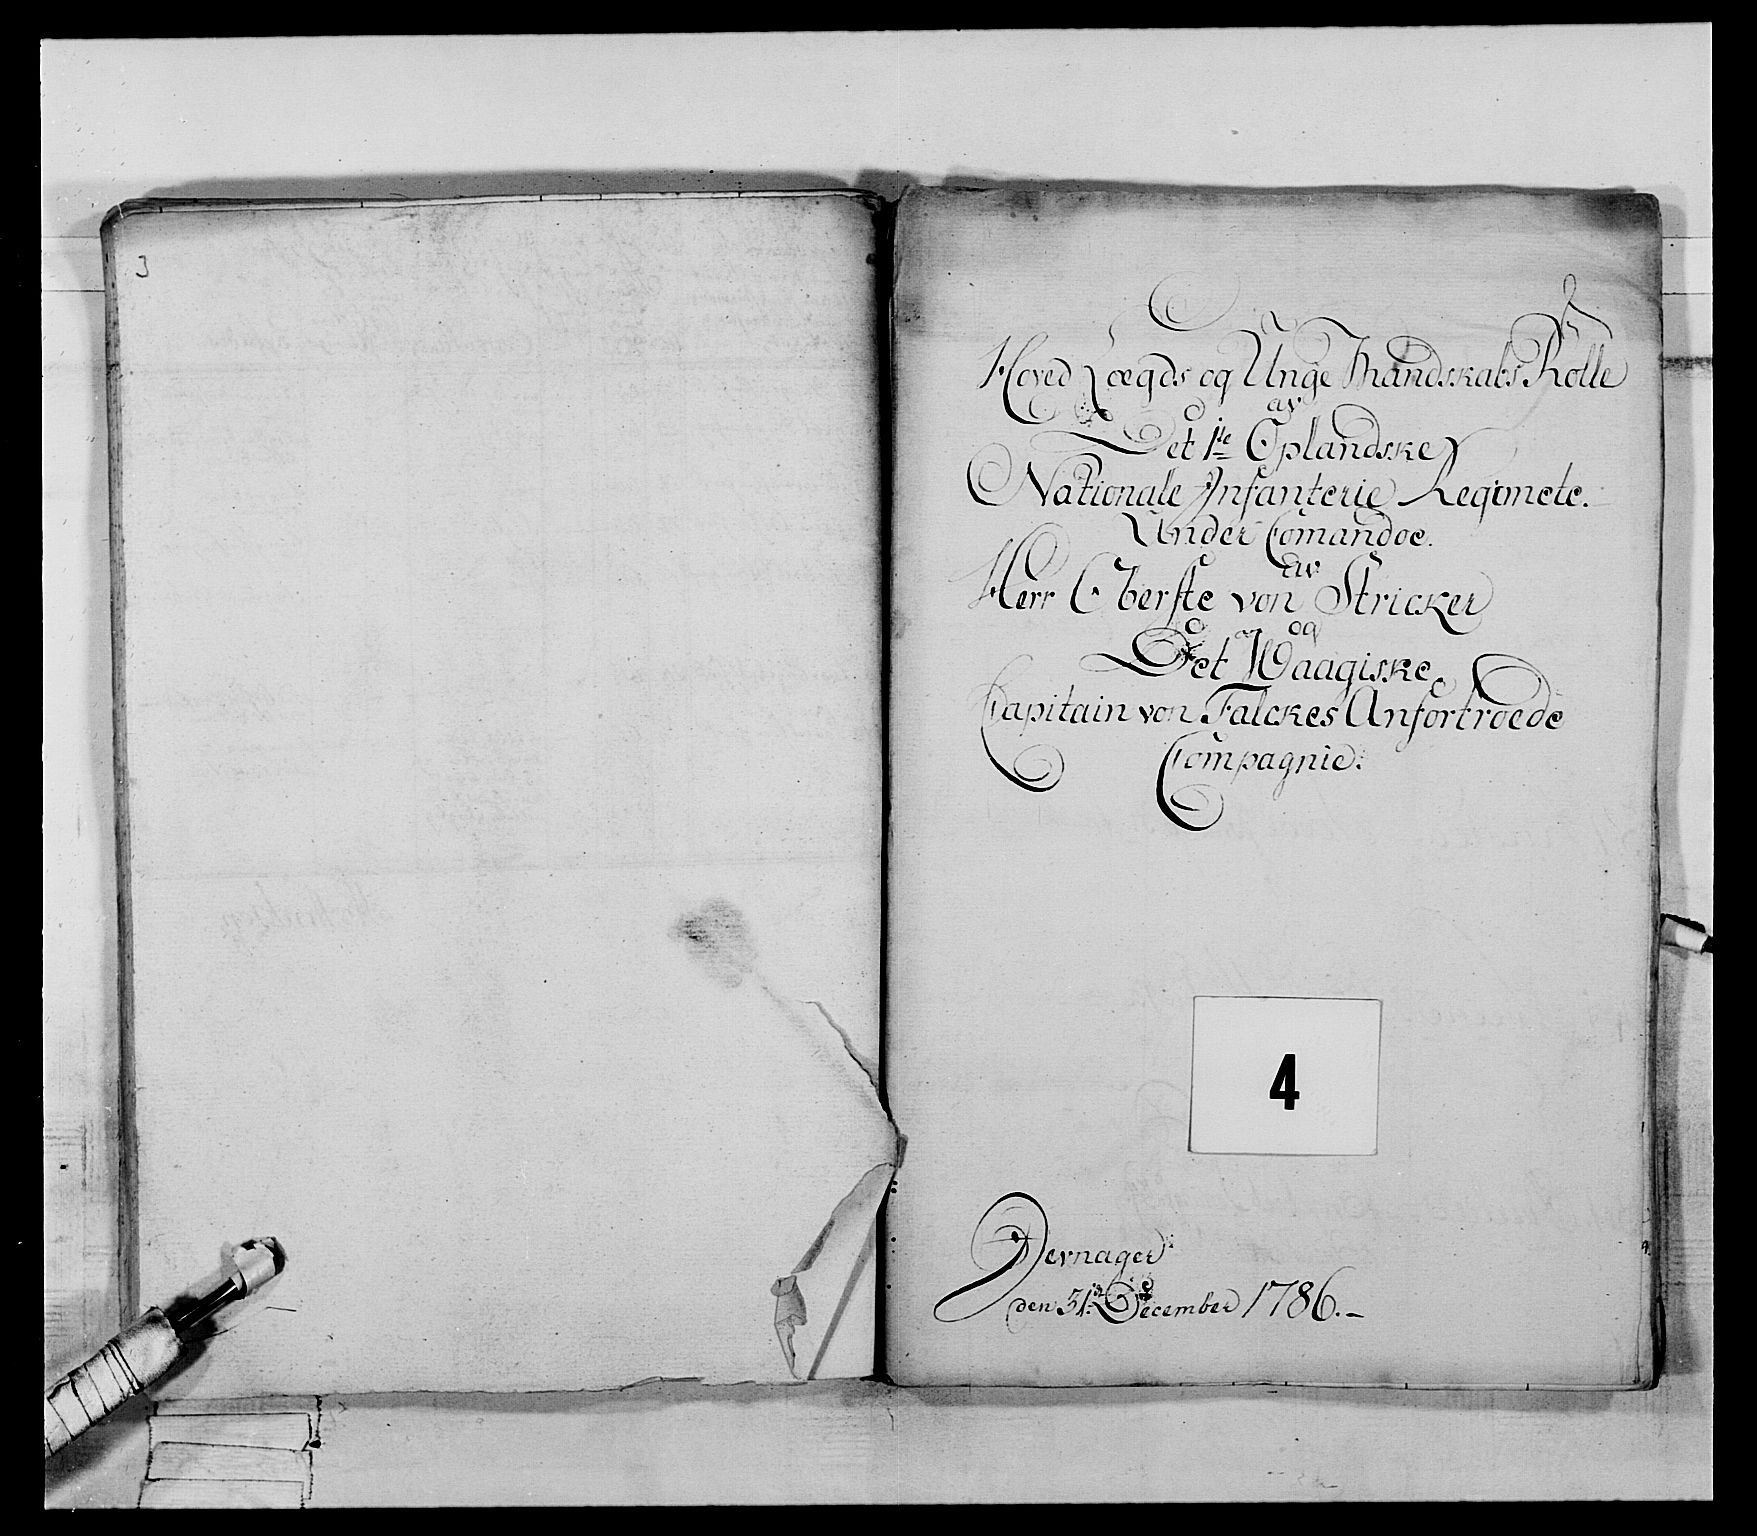 3
Hoved Lœgds og Unge Mandskabs Rolle
av
Det 1te Oplandske
Nationale Infanterie Regimete.
Under Comandoe.
av
Herr Oberste von Stricker
og
Det Waagiske
Capitain von Falckes Anfortroede
Compagnie.
4
Devnager
den 31te December 1786.-